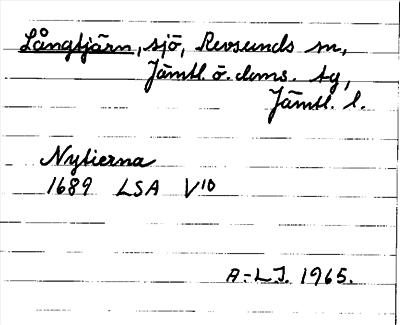 Långtjärn, sjö, Revsunds sn,
Jämtl. ö. doms. tg,
Jämtl. l.
Nytierna
1689 LSA V10
A-LJ. 1965.